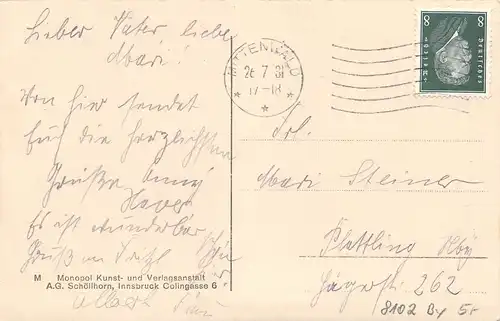 Lieber Vater, liebe
Mari!
Von hier sendet
Euch die herzlichsten
Grüße Anny
Es ist wunderbar
Gruß an
M Monopol Kunst- und Verlagsanstalt
A.G. Schöllhorn, Innsbruck Colingasse 6
MITTENWALD
26 7 31
17-18
8
Deutsches
Reich
Frl.
Mari Steiner
Plattling
262
8102 By 5,-